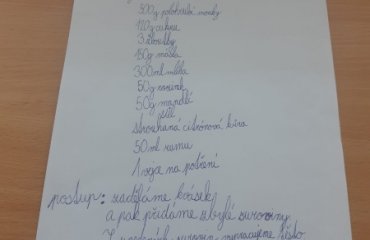 500g polohrubé mouky
120g cukru
3 žloutky
150g másla
300ml mléka
50g rozinek
50g mandlí
sůl
strouhaná citrónová kůra
50ml rumu
1 vejce na potření
postup: zaděláme kvásek
a pak přidáme zbylé suroviny
vypracujeme těsto